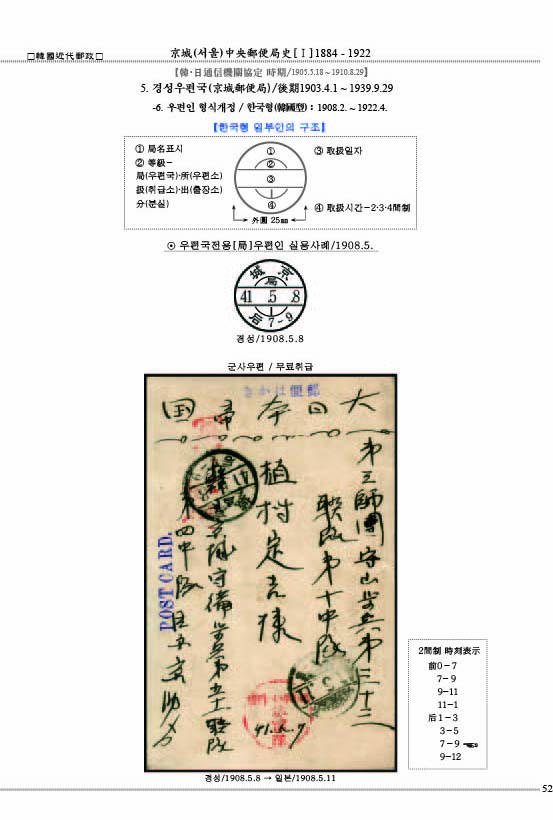 □韓國近代郵政□
京城(서울)中央郵便局史[Ⅰ]1884 - 1922
【韓·日通信機關協定 時期/1905.5.18~1910.8.29】
5. 경성우편국(京城郵便局)/後期1903.4.1~1939.9.29
-6. 우편인 형식개정 / 한국형(韓國型) : 1908.2. ~1922.4.
【한국형 일부인의 구조】
① 局名표시
② 等級-
局(우편국)·所(우편소)
扱(취급소)·出(출장소)
分(분실)
①
②
③
④
外圓 25㎜
③ 取扱일자
④ 取扱시간-2·3·4間制
⊙ 우편국전용[局]우편인 실용사례/1908.5.
京城
局
41 .5 .8
后 7-9
경성/1908.5.8
군사우편 / 무료취급
郵便はかき
大日本帝国
第三師團守山步兵第三十三
聯隊第十中隊
植村定吉様
京城守備步兵第五十聯隊
第四中隊
POST CARD.
2間制 時刻表示
前0-7
7-9
9-11
11-1
后1-3
3-5
7-9
9-12
경성/1908.5.8 → 일본/1908.5.11
52